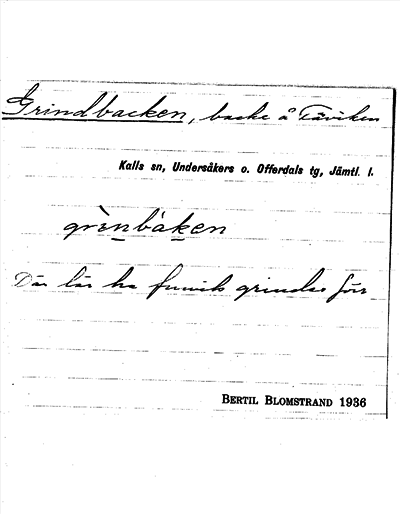 Grindbacken, backe å Täviken
Kalls sn, Undersåkers o. Offerdals tg, Jämtl. l.
grìnbàken
Där lär ha funnits grindar förr
BERTIL BLOMSTRAND 1936